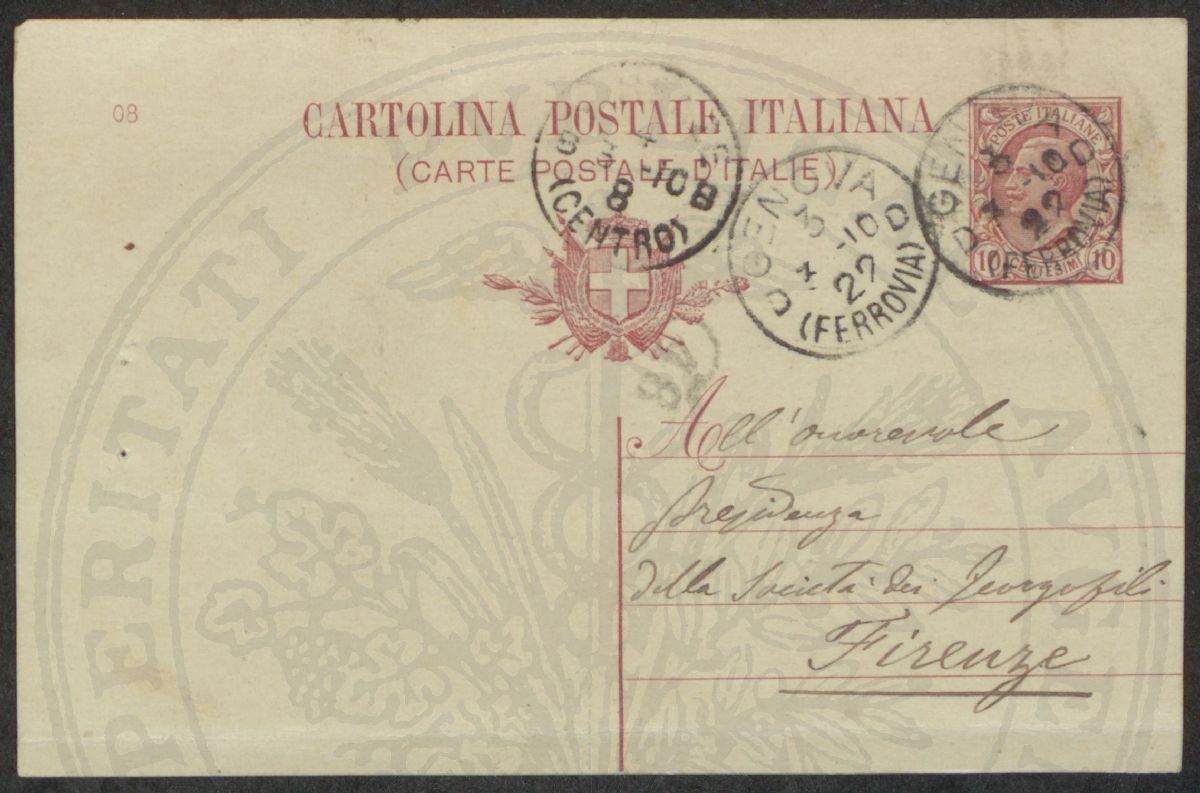 08
CARTOLINA POSTALE ITALIANA
(CARTE POSTALE D'ITALIE)
POSTE ITALIANE
10 CENTESIMI 10
4 -10 B
8
(CENTRO)
3 -10
4
22
(FERROVIA)
-10
22
(FERROVIA)
All'onorevole
Presidenza
della Società dei Georgofili
Firenze
PERITATI